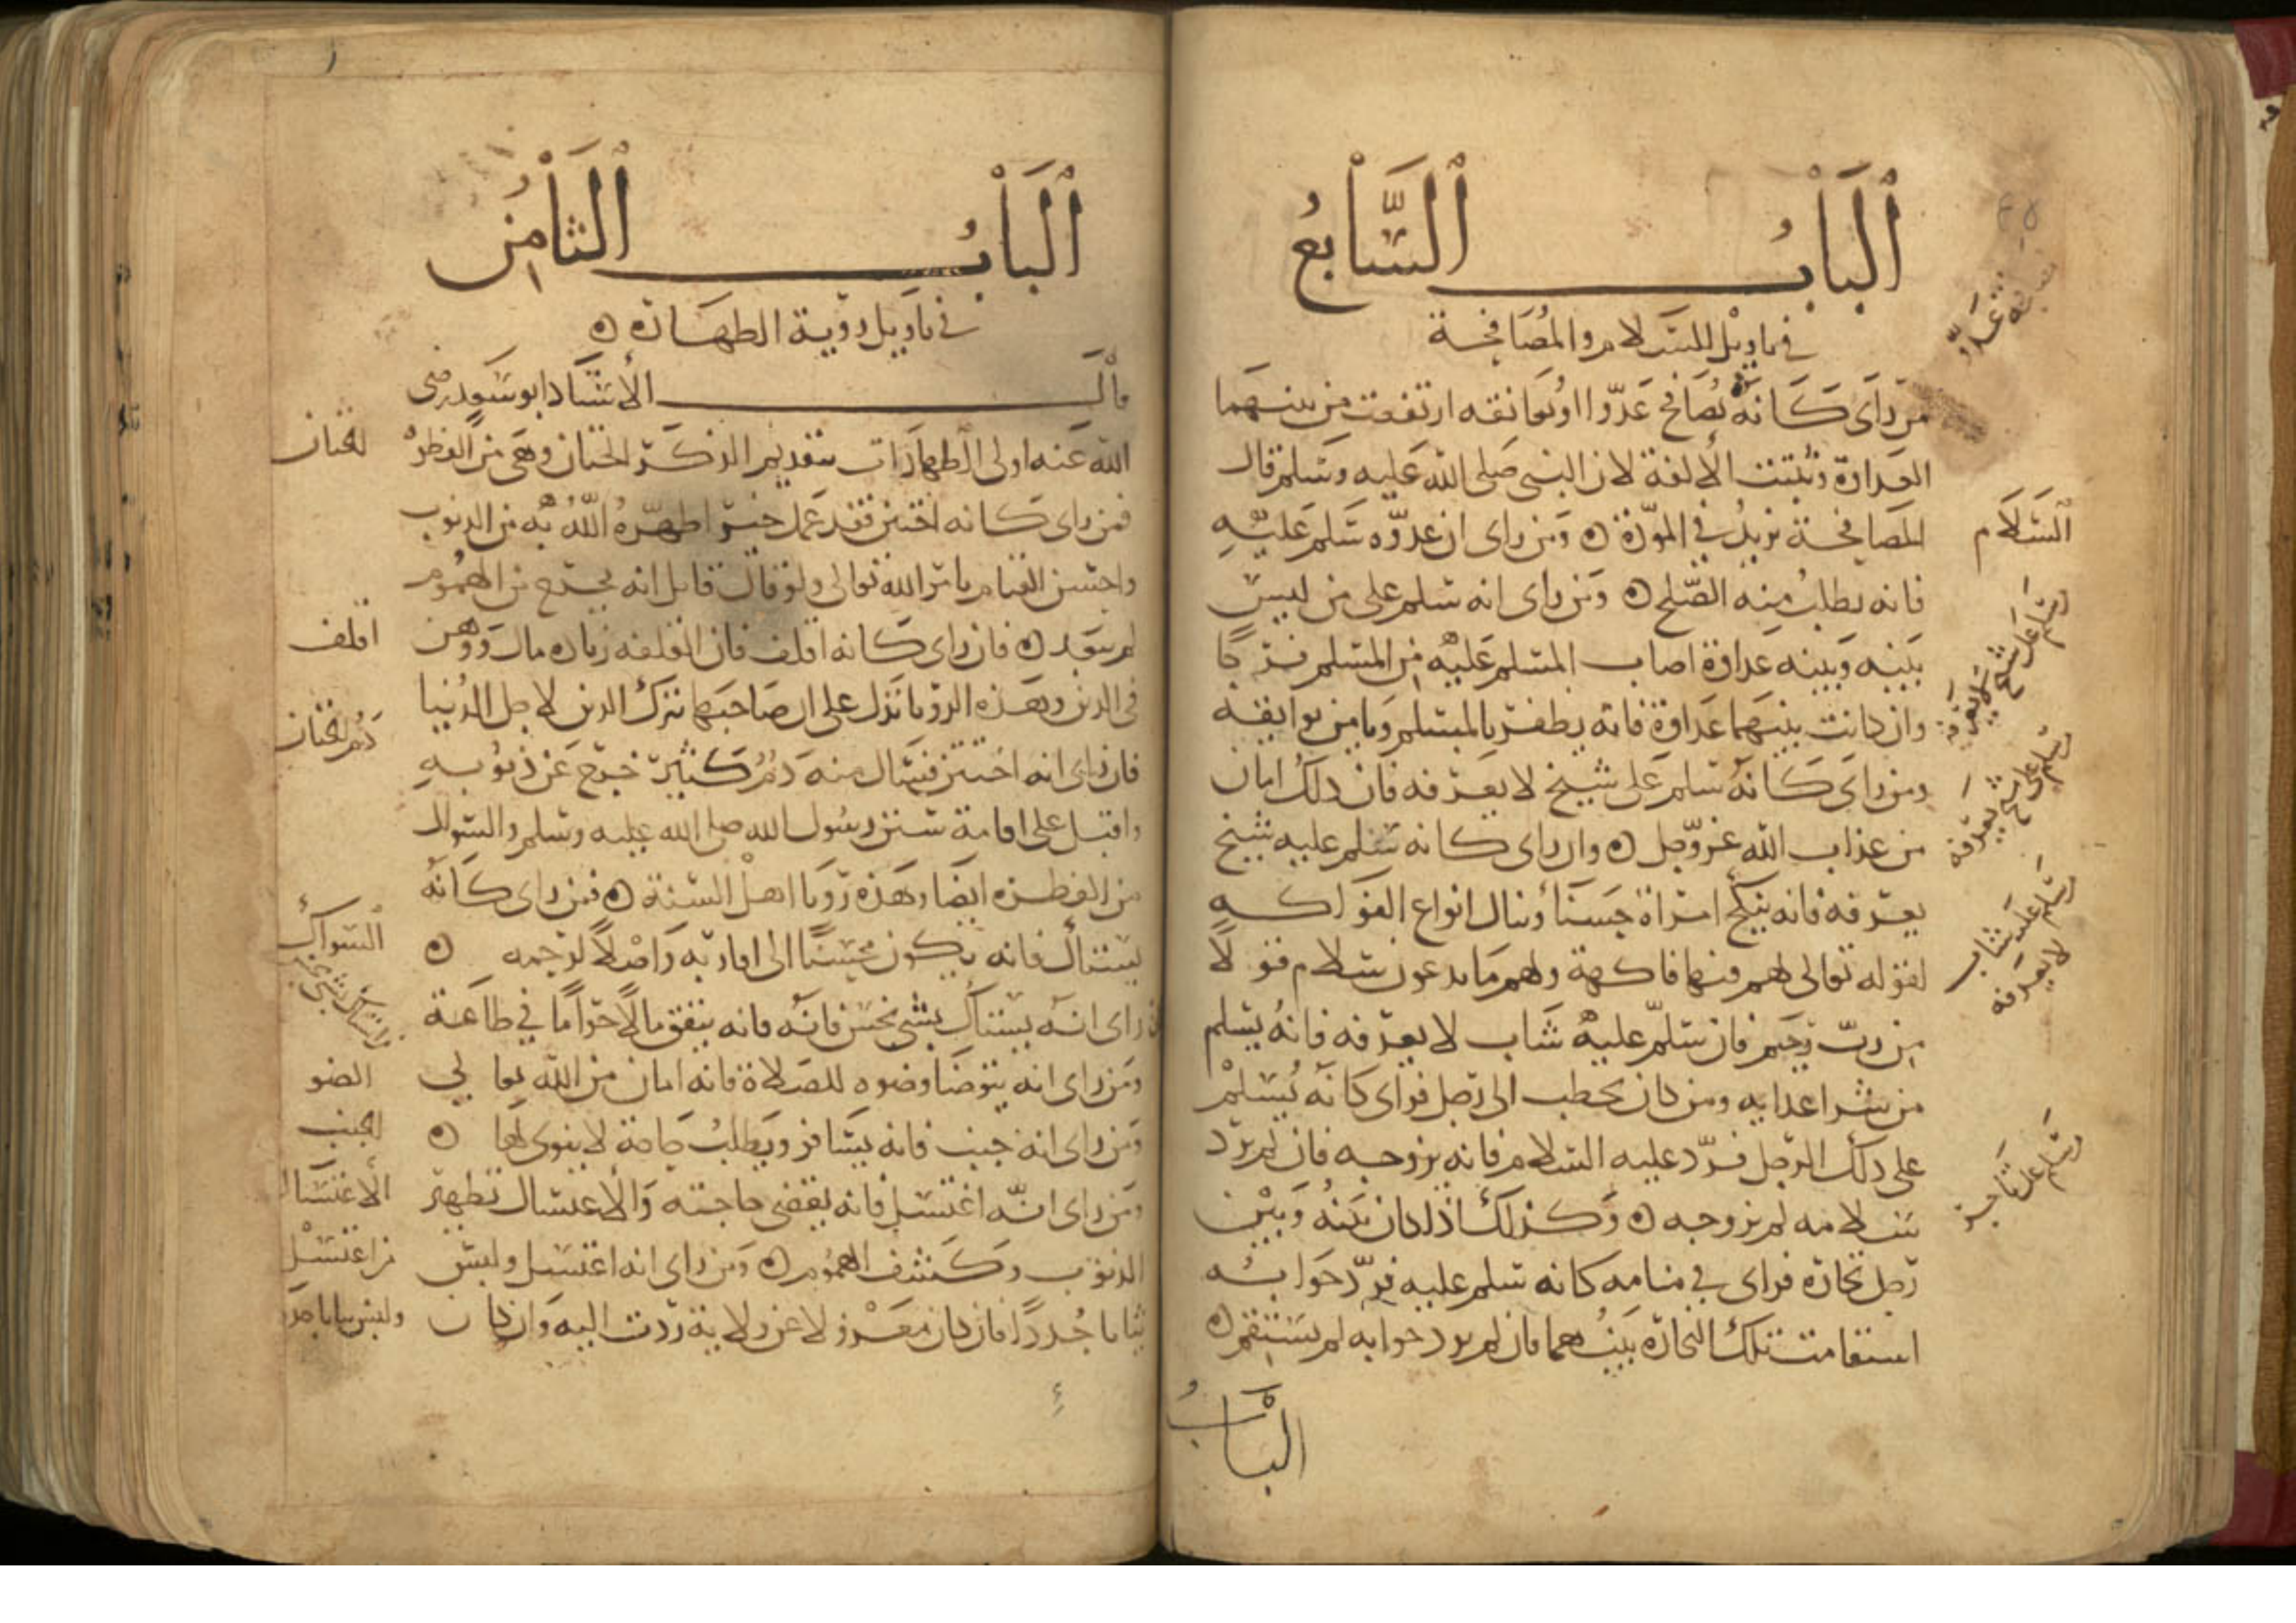 الباب السابع
في تاويل السلام والمصافحة
من راى كانه يصافح عدوا او يعانقه ارتفعت من بينهما
العداوة وثبتت الالفة لان النبي صلى الله عليه وسلم قال
المصافحة تزيد في المودة ٥ ومن راى ان عدوه سلم عليه
فانه يطلب منه الصلح ٥ ومن راى انه سلم على من ليس
بينه وبينه عداوة اصاب المسلم عليه من المسلم فرحا
وان كانت بينهما عداوة فانه يظفر بالمسلم ويامن بوايقه
ومن راى كانه سلم على شيخ لا يعرفه فان ذلك امان
من عذاب الله عز وجل ٥ وان راى كانه سلم عليه شيخ
يعرفه فانه ينكح امراة حسنا وينال انواع الفواكه
لقوله تعالى لهم فيها فاكهة ولهم ما يدعون سلام قولا
من رب رحيم فان سلم عليه شاب لا يعرفه فانه يسلم
من شر اعدايه ومن كان يخطب الى رجل فراى كانه يسلم
على ذلك الرجل فرد عليه السلام فانه يزوجه فان لم يرد
سلامه لم يزوجه ٥ وكذلك اذا كان بينه وبين
رجل تجارة فراى في منامه كانه سلم عليه فرد جوابه
استقامت تلك التجارة بينهما فان لم يرد جوابه لم يستقم ٥
الباب
السلام
سلم على شيخ لا يعرفه
سلم على شيخ يعرفه
سلم عليه شاب
لا يعرفه
سلم على تاجر
الباب الثامن
في تاويل روية الطهارة ٥
قال الاستاد ابو سعد رضى
الله عنه اولى الطهارات بتقديم الذكر الختان وهي من الفطرة
فمن راى كانه اختتن فقد عمل خيرا طهره الله به من الذنوب
واحسن القيام بامر الله تعالى ولو قال قايل انه يخرج من الهموم
لم يبعد ٥ فان راى كانه اقلف فان القلفه زيادة مال ووهن
في الدين وهذه الرويا تدل على ان صاحبها يترك الدين لاجل الدنيا
فان راى انه اختتن فسال منه دم كثير خرج عن ذنوبه
واقبل على اقامة سنن رسول الله صلى الله عليه وسلم والسواك
من الفطرة ايضا وهذه رويا اهل السنة ٥ فمن راى كانه
يستاك فانه يكون محسنا الى اقاربه واصلا لرحمه ٥
فان راى انه يستاك بشي نجس فانه فانه ينفق مالا حراما في طاعة
ومن راى انه يتوضا وضوه للصلاة فانه امان من الله تعالى
ومن راى انه جنب فانه يسافر ويطلب حاجة لا ينوى لها ٥
ومن راى انه اغتسل فانه يقضى حاجته والاغتسال تطهير
الذنوب وكشف الهموم ٥ ومن راى انه اغتسل ولبس
ثيابا جددا فان كان معزولا عن ولاية ردت اليه وان كان
الختان
اقلف
دم الختان
السواك
الضو
الجنب
الاغتسال
من اغتسل
ولبس ثيابا جددا